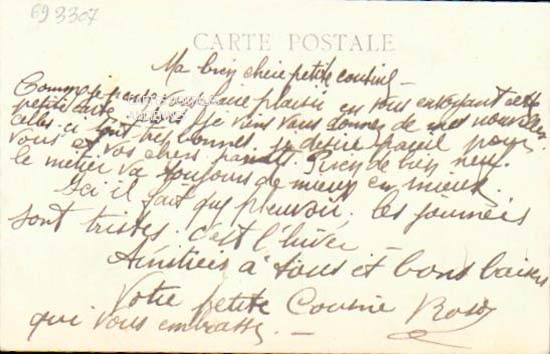 69 3307
CARTE POSTALE
Ma bien chere petite cousine
Comme je pense vous faire plaisir en vous envoyant cette
petite carte Je viens vous donner de mes nouvelles
celles ci sont très bonnes. je désire pareil pour
vous et vos chers parents. Rien de bien neuf.
le métier va toujours de mieux en mieux.
Ici il fait que pleuvoir. les journées
sont tristes. c'est l'hiver
Amitiés à tous et bons baisers
Votre petite Cousine Rosa
qui vous embrasse. —